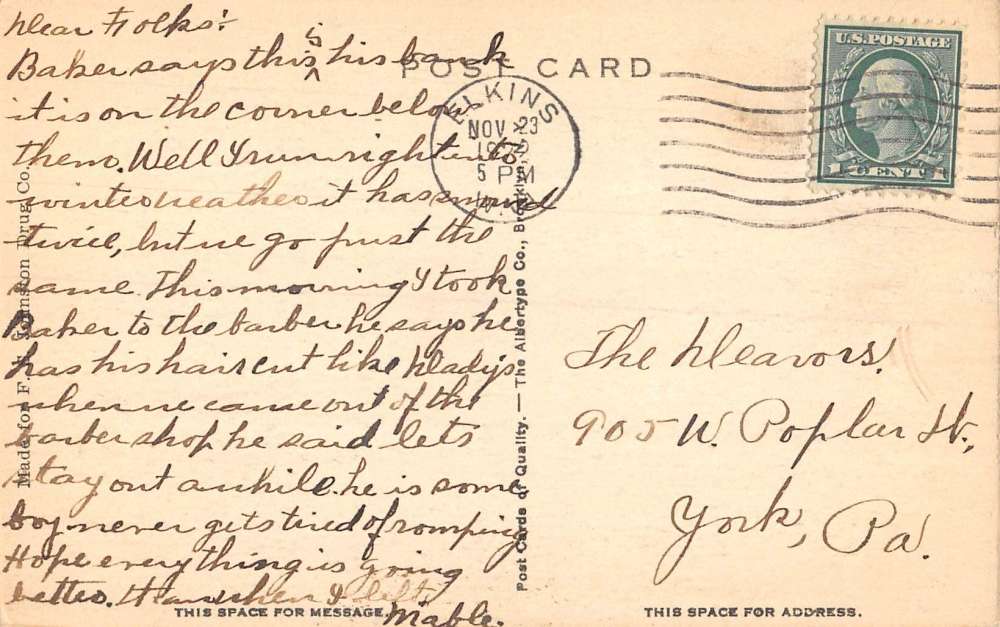 Dear Folks:
Baker says this is his bank
it is on the corner below
them. Well I run right into
winter weather it has snowed
twice, but we go just the
same. This morning I took
Baker to the barber he says he
has his haircut like Dadys
when we came out of the
barber shop he said lets
stay out awhile. he is some
boy never gets tired of romping
Hope everything is going
better. than when I left.
Mable.
POST CARD
ELKINS
NOV 23
5 PM
W.VA.
U.S. POSTAGE
1 CENT 1
The Deavors.
905 W. Poplar St.,
York, Pa.
Made for F. Johnston Drug Co.
Post Cards of Quality. — The Albertype Co., Brooklyn, N.Y.
THIS SPACE FOR MESSAGE.
THIS SPACE FOR ADDRESS.